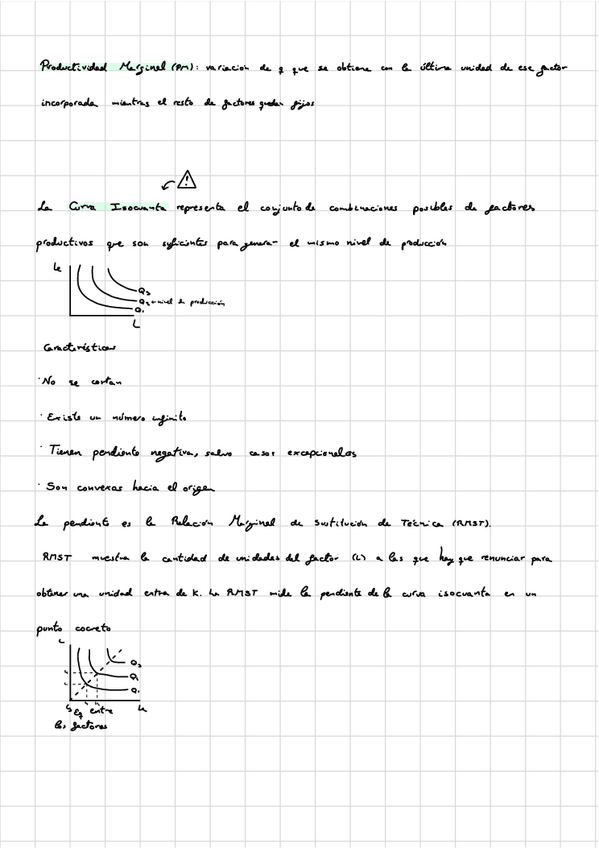 Productividad Marginal (PM): variación de q que se obtiene con la última unidad de ese factor
incorporada mientras el resto de factores quedan fijos
La Curva Isocuanta representa el conjunto de combinaciones posibles de factores
productivos que son suficientes para generar el mismo nivel de producción
Q₃
Q₂ nivel de producción
Q₁
L
Características
· No se cortan
· Existe un número infinito
· Tienen pendiente negativa, salvo casos excepcionales
· Son convexas hacia el origen
La pendiente es la Relación Marginal de Sustitución de Técnica (RMST).
RMST muestra la cantidad de unidades del factor (L) a las que hay que renunciar para
obtener una unidad extra de K. La RMST mide la pendiente de la curva isocuanta en un
punto cocreto
L
Q₃
Q₁
entre
los factores